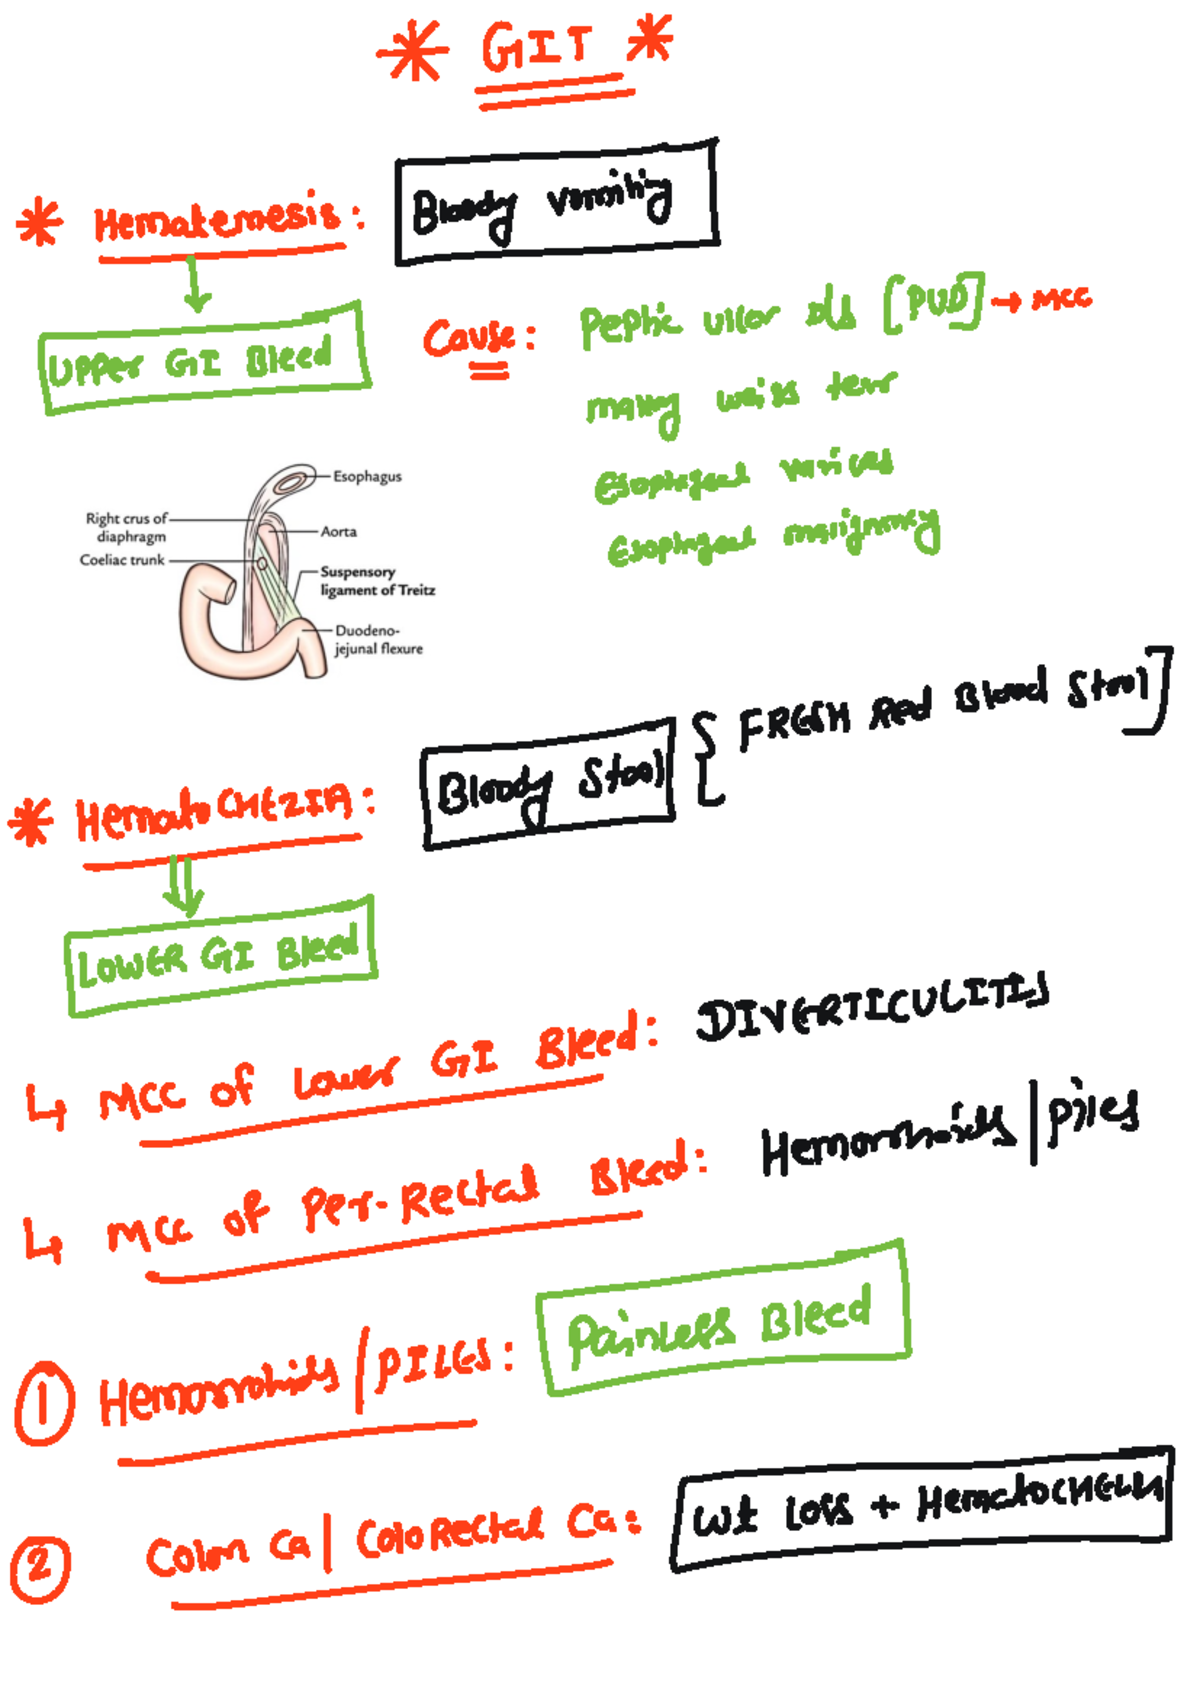 * GIT *
* Hematemesis: Bloody vomiting
UPPER GI Bleed
Cause: Peptic ulcer dis [PUD] → MCC
mallory weiss tear
Esophageal varices
Esophageal malignancy
Esophagus
Right crus of
diaphragm
Aorta
Coeliac trunk
Suspensory
ligament of Treitz
Duodeno-
jejunal flexure
* HematoCHEZIA: Bloody Stool [FRESH Red Blood Stool]
LOWER GI Bleed
↳ MCC of Lower GI Bleed: DIVERTICULITIS
↳ MCC of Per-Rectal Bleed: Hemorrhoids | piles
① Hemorrhoids / PILES: Painless Bleed
② Colon Ca | ColoRectal Ca: wt loss + HematoCHEZIA